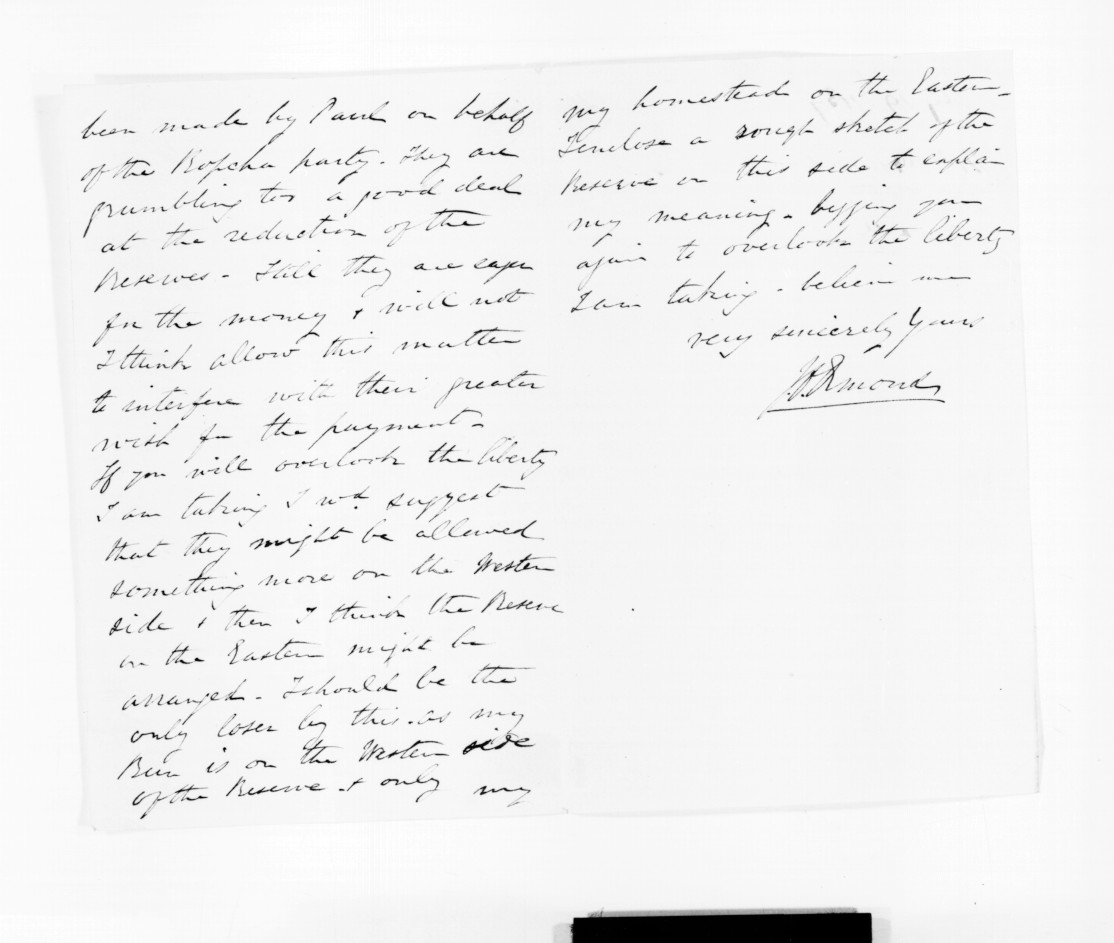 been made by Paul on behalf
of the Ropeha party. They are
grumbling too a good deal
at the reduction of the
Reserves - Still they are eager
for the money & will not
I think allow this matter
to interfere with their greater
wish for the payment -
If you will overlook the liberty
I am taking I wd. suggest
that they might be allowed
something more on the Western
side & then I think the Reserve
on the Eastern might be
arranged - I should be the
only loser by this - as my
Run is on the Western side
of the Reserve & only my
my homestead on the Eastern -
I enclose a rough sketch of the
Reserve on this side to explain
my meaning - begging you
again to overlook the liberty
I am taking - believe me
very sincerely Yours
Ormond